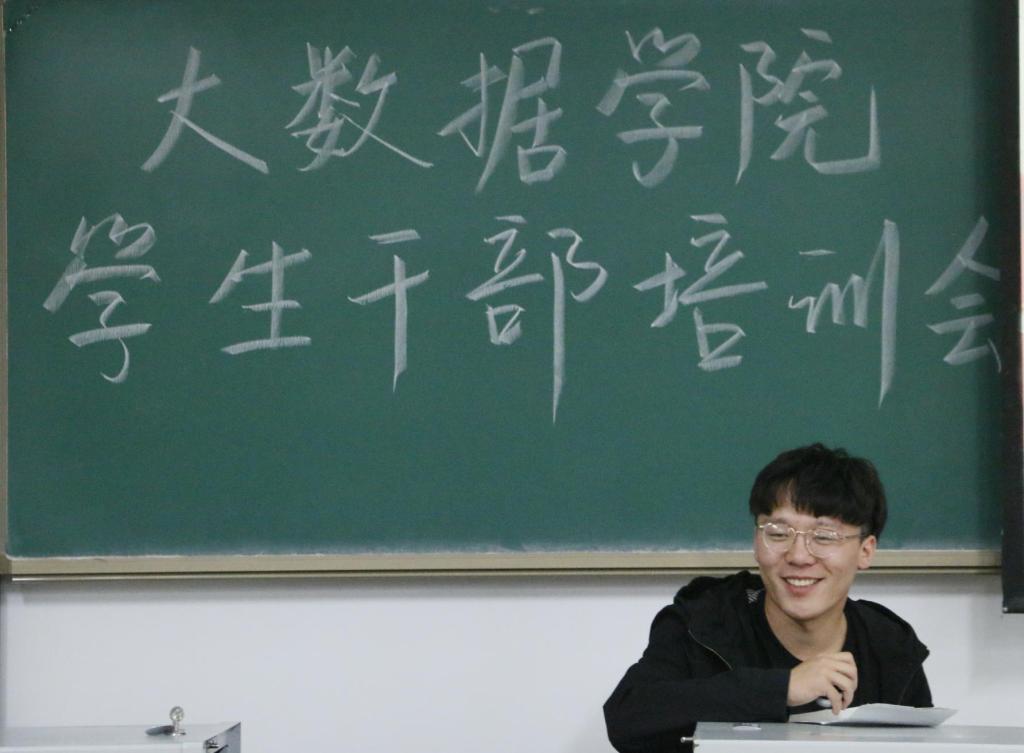 大数据学院
学生干部培训会